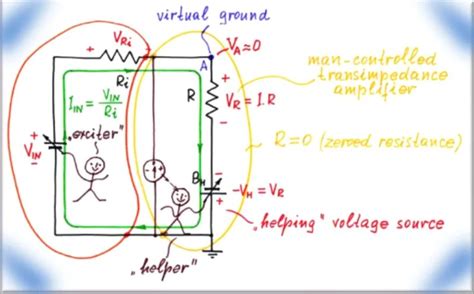 virtual ground
+ VRi -
A
VA≈0
Ri
man-controlled
transimpedance
amplifier
IIN = VIN
Ri
R
+
VR = I.R
-
„exciter"
R=0 (zeroed resistance)
+
VIN
-
BH
-
-VH = VR
+
„helping" voltage source
„helper"